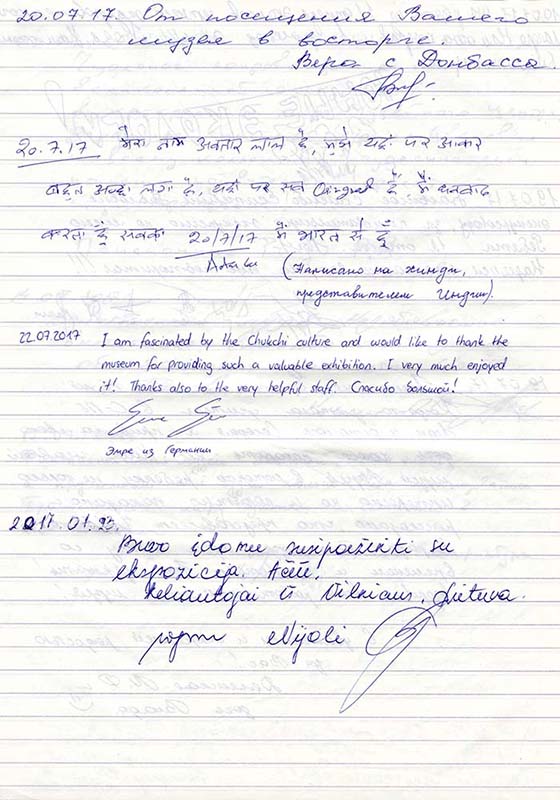 20.07.17. От посещения Вашего
музея в восторге
Вера с Донбасса.
20.7.17 मेरा नाम अवतार लाल है, मुझे यहां पर आकर
बहुत अच्छा लगा है, यहां पर सब Original है. मैं धन्यवाद
करता हूँ सबका 20/7/17 मैं भारत से हूँ
(Написано на хинди,
представителем Индии).
22.07.2017 I am fascinated by the Chukchi culture and would like to thank the
museum for providing such a valuable exhibition. I very much enjoyed
it! Thanks also to the very helpful staff. Спасибо большой!
Эмре из Германии
2017.01.23.
Buvo įdomu susipažinti su
ekspozicija. Ačiū!
Keliautojai iš Vilniaus, Lietuva.
Nijolė